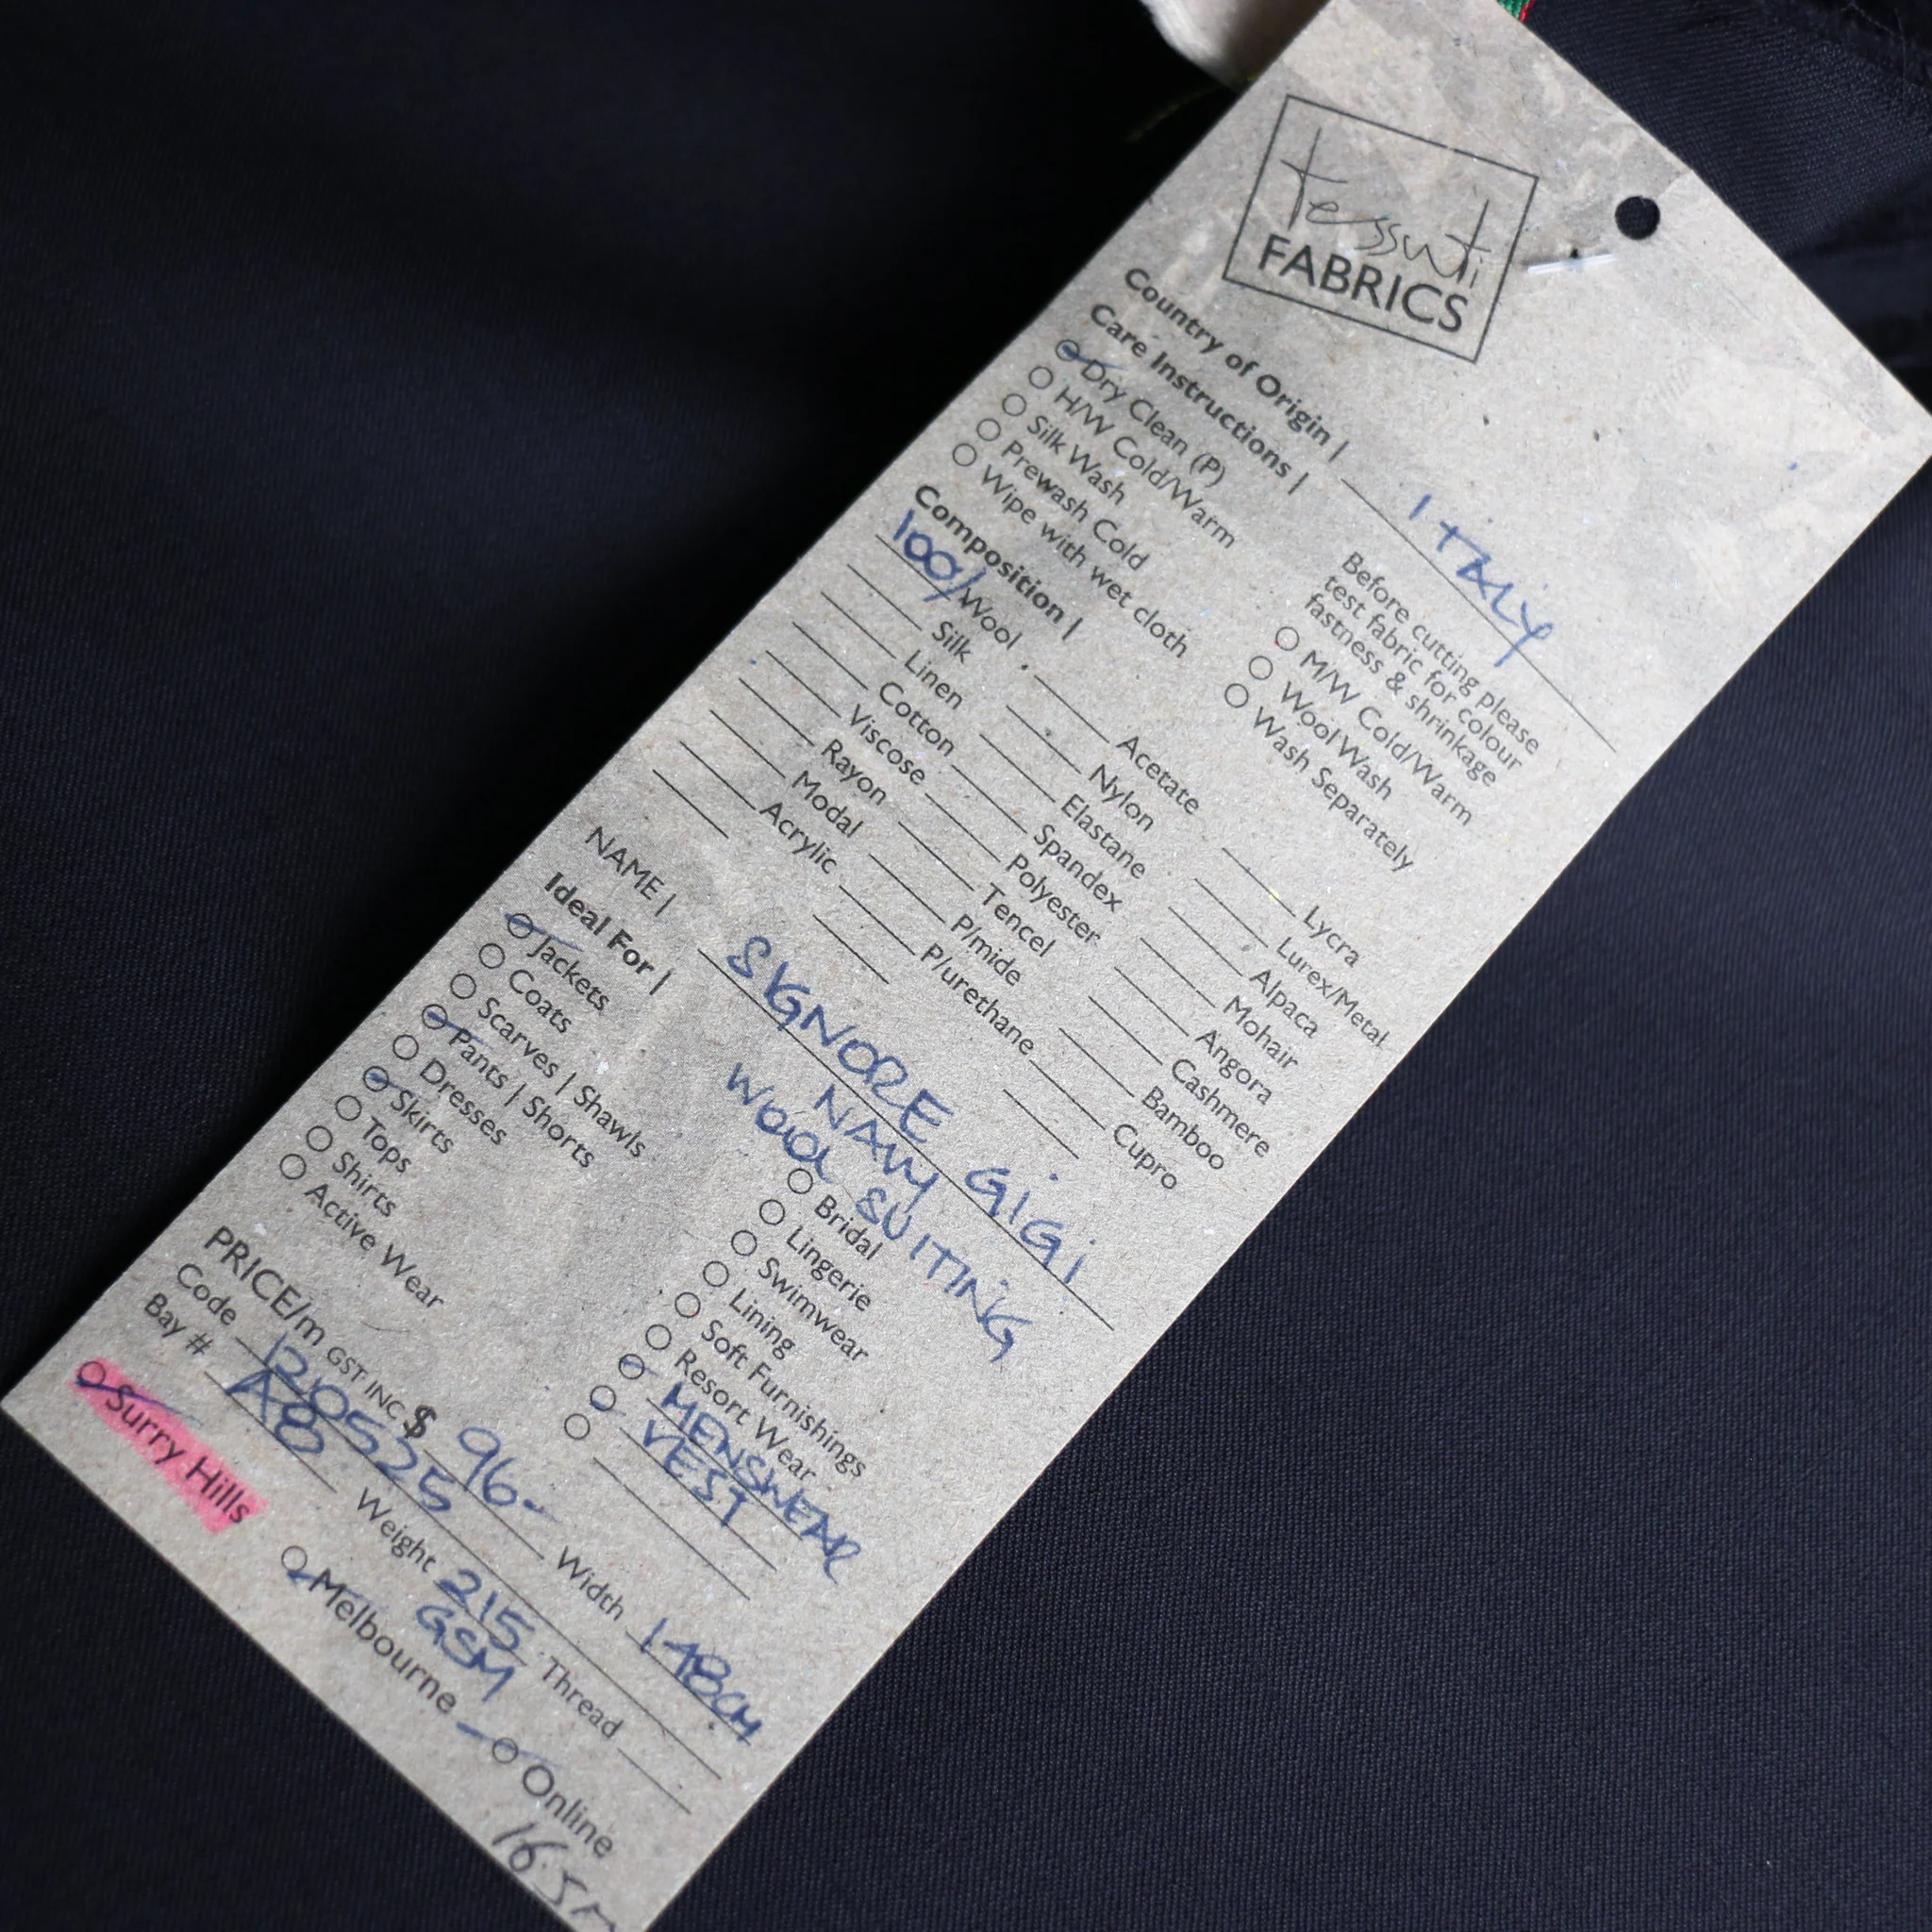 tessuti
FABRICS
Country of Origin | ITALY
Care Instructions |
Before cutting please
test fabric for colour
fastness & shrinkage
Dry Clean (P)
H/W Cold/Warm
Silk Wash
Prewash Cold
Wipe with wet cloth
M/W Cold/Warm
Wool Wash
Wash Separately
Composition |
100% Wool
Silk
Linen
Cotton
Viscose
Rayon
Modal
Acrylic
Acetate
Nylon
Elastane
Spandex
Polyester
Tencel
P/mide
P/urethane
Lycra
Lurex/Metal
Alpaca
Mohair
Angora
Cashmere
Bamboo
Cupro
NAME | SIGNORE GIGI
NAVY
WOOL SUITING
Ideal For |
Jackets
Coats
Scarves | Shawls
Pants | Shorts
Dresses
Skirts
Tops
Shirts
Active Wear
Bridal
Lingerie
Swimwear
Lining
Soft Furnishings
Resort Wear
MENSWEAR
VEST
PRICE/m GST INC $ 96- Width 148CM
Code 1210525
Bay # A8 Weight 215 GSM Thread
Surry Hills Melbourne Online
16.5m